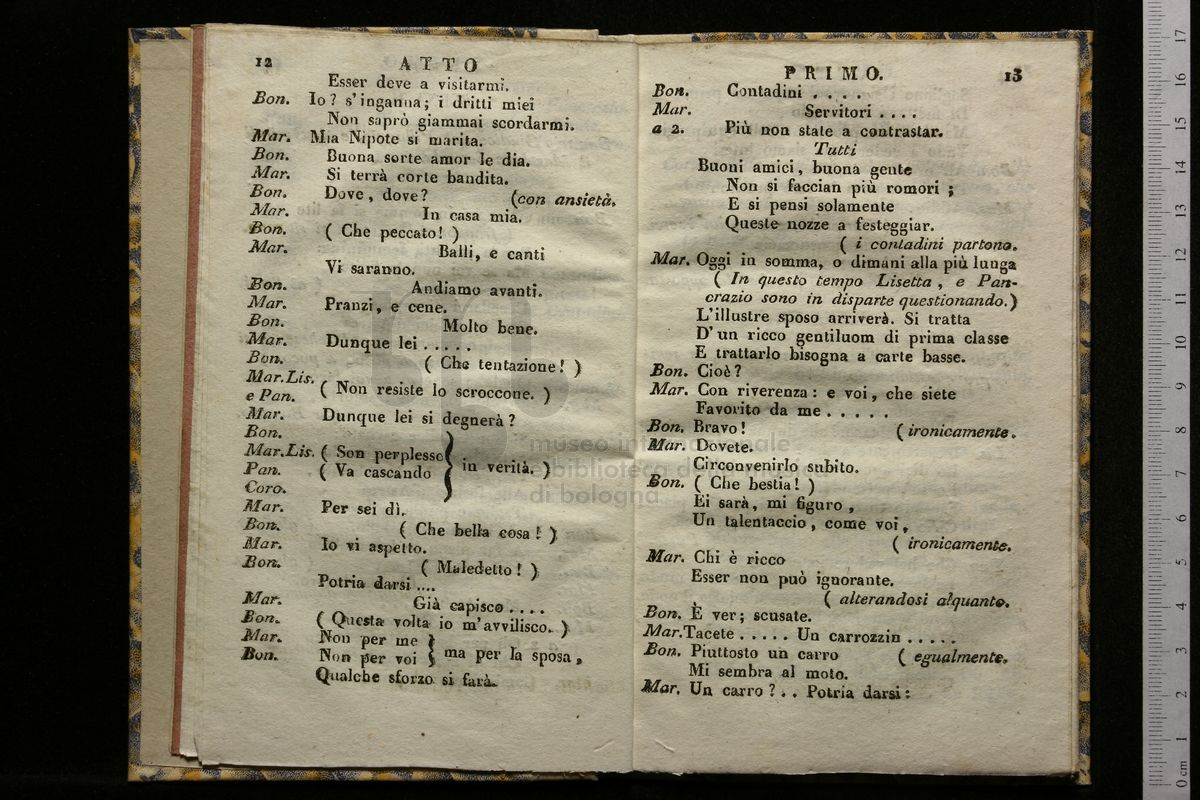 12 ATTO
Esser deve a visitarmi.
Bon. Io? s'inganna; i dritti miei
Non saprò giammai scordarmi.
Mar. Mia Nipote si marita.
Bon. Buona sorte amor le dia.
Mar. Si terrà corte bandita.
Bon. Dove, dove? (con ansietà.
Mar. In casa mia.
Bon. ( Che peccato! )
Mar. Balli, e canti
Vi saranno.
Bon. Andiamo avanti.
Mar. Pranzi, e cene.
Bon. Molto bene.
Mar. Dunque lei .....
Bon. ( Che tentazione! )
Mar. Lis.
e Pan. ( Non resiste lo scroccone. )
Mar. Dunque lei si degnerà?
Bon.
Mar. Lis. ( Son perplesso
Pan. ( Va cascando } in verità. )
Coro.
Mar. Per sei dì.
Bon. ( Che bella cosa! )
Mar. Io vi aspetto.
Bon. ( Maledetto! )
Potria darsi ....
Mar. Già capisco ....
Bon. ( Questa volta io m'avvilisco. )
Mar. Non per me
Bon. Non per voi } ma per la sposa,
Qualche sforzo si farà.
PRIMO. 13
Bon. Contadini ....
Mar. Servitori ....
a 2. Più non state a contrastar.
Tutti
Buoni amici, buona gente
Non si faccian più romori;
E si pensi solamente
Queste nozze a festeggiar.
( i contadini partono.
Mar. Oggi in somma, o dimani alla più lunga
( In questo tempo Lisetta, e Pan-
crazio sono in disparte questionando.)
L'illustre sposo arriverà. Si tratta
D'un ricco gentiluom di prima classe
E trattarlo bisogna a carte basse.
Bon. Cioè?
Mar. Con riverenza: e voi, che siete
Favorito da me .....
Bon. Bravo! ( ironicamente.
Mar. Dovete.
Circonvenirlo subito.
Bon. ( Che bestia! )
Ei sarà, mi figuro,
Un talentaccio, come voi,
( ironicamente.
Mar. Chi è ricco
Esser non può ignorante.
( alterandosi alquanto.
Bon. È ver; scusate.
Mar. Tacete ..... Un carrozzin .....
Bon. Piuttosto un carro ( egualmente.
Mi sembra al moto.
Mar. Un carro? .. Potria darsi:
museo internazionale
e biblioteca della musica
di bologna
0 cm 1 2 3 4 5 6 7 8 9 10 11 12 13 14 15 16 17